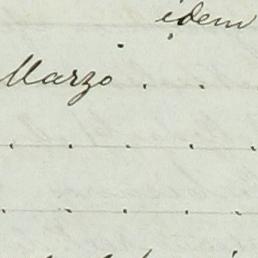 idem
Marzo . .